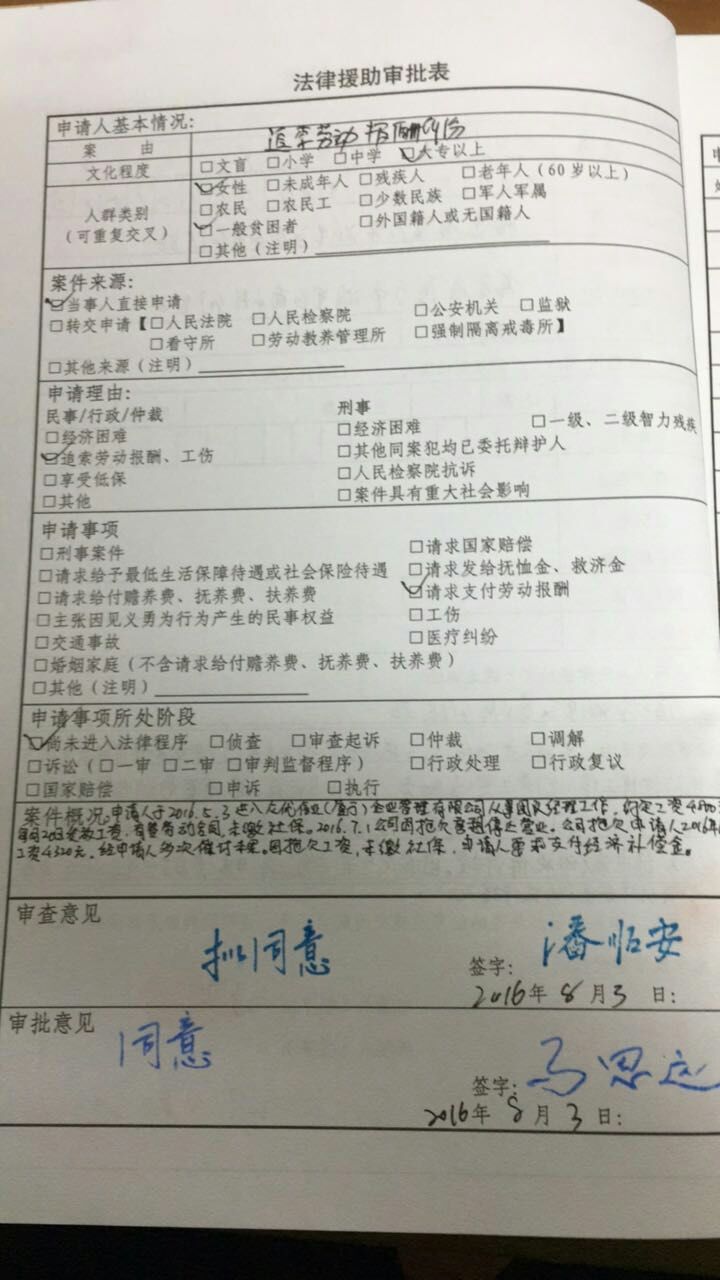 法律援助审批表
申请人基本情况：
案 由 追索劳动报酬纠纷
文化程度 □文盲 □小学 □中学 ☑大专以上
人群类别
（可重复交叉）
☑女性 □未成年人 □残疾人 □老年人（60岁以上）
□农民 □农民工 □少数民族 □军人军属
☑一般贫困者 □外国籍人或无国籍人
□其他（注明）
案件来源：
☑当事人直接申请
□转交申请【□人民法院 □人民检察院 □公安机关 □监狱
□看守所 □劳动教养管理所 □强制隔离戒毒所】
□其他来源（注明）
申请理由：
民事/行政/仲裁 刑事
□经济困难 □经济困难 □一级、二级智力残疾
☑追索劳动报酬、工伤 □其他同案犯均已委托辩护人
□享受低保 □人民检察院抗诉
□其他 □案件具有重大社会影响
申请事项
□刑事案件 □请求国家赔偿
□请求给予最低生活保障待遇或社会保险待遇 □请求发给抚恤金、救济金
□请求给付赡养费、抚养费、扶养费 ☑请求支付劳动报酬
□主张因见义勇为行为产生的民事权益 □工伤
□交通事故 □医疗纠纷
□婚姻家庭（不含请求给付赡养费、抚养费、扶养费）
□其他（注明）
申请事项所处阶段
☑尚未进入法律程序 □侦查 □审查起诉 □仲裁 □调解
□诉讼（□一审 □二审 □审判监督程序） □行政处理 □行政复议
□国家赔偿 □申诉 □执行
案件概况：申请人于2016.5.3进入 企业管理有限公司从事 经理工作，约定工资
每月20日发放工资，有签劳动合同，未缴社保。2016.7.1公司因拖欠房租停止营业。公司拖欠申请人2016年
工资4320元，经申请人多次催讨未果。因拖欠工资，未缴社保，申请人要求支付经济补偿金。
审查意见
拟同意
签字： 潘临安
2016年8月3日：
审批意见
同意
签字： 马思远
2016年8月3日：